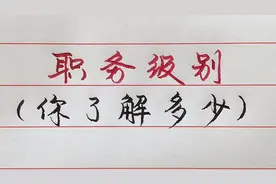 职务级别
(你了解多少)